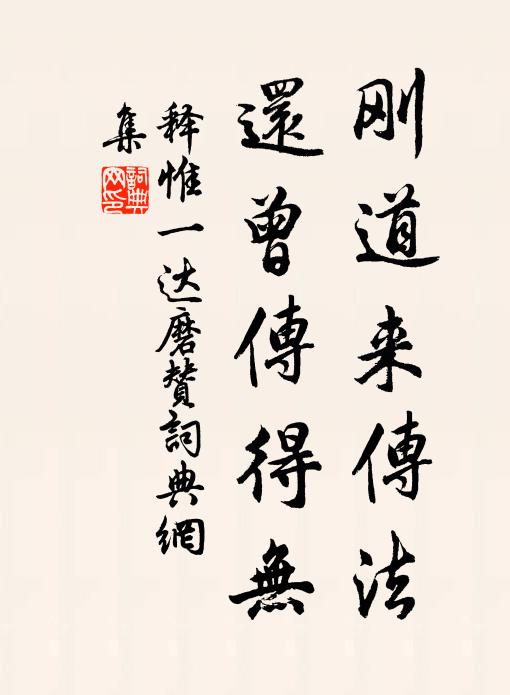 刚道来傳法
還曾傳得無
释惟一达磨赞詞典網
集
詞典网印